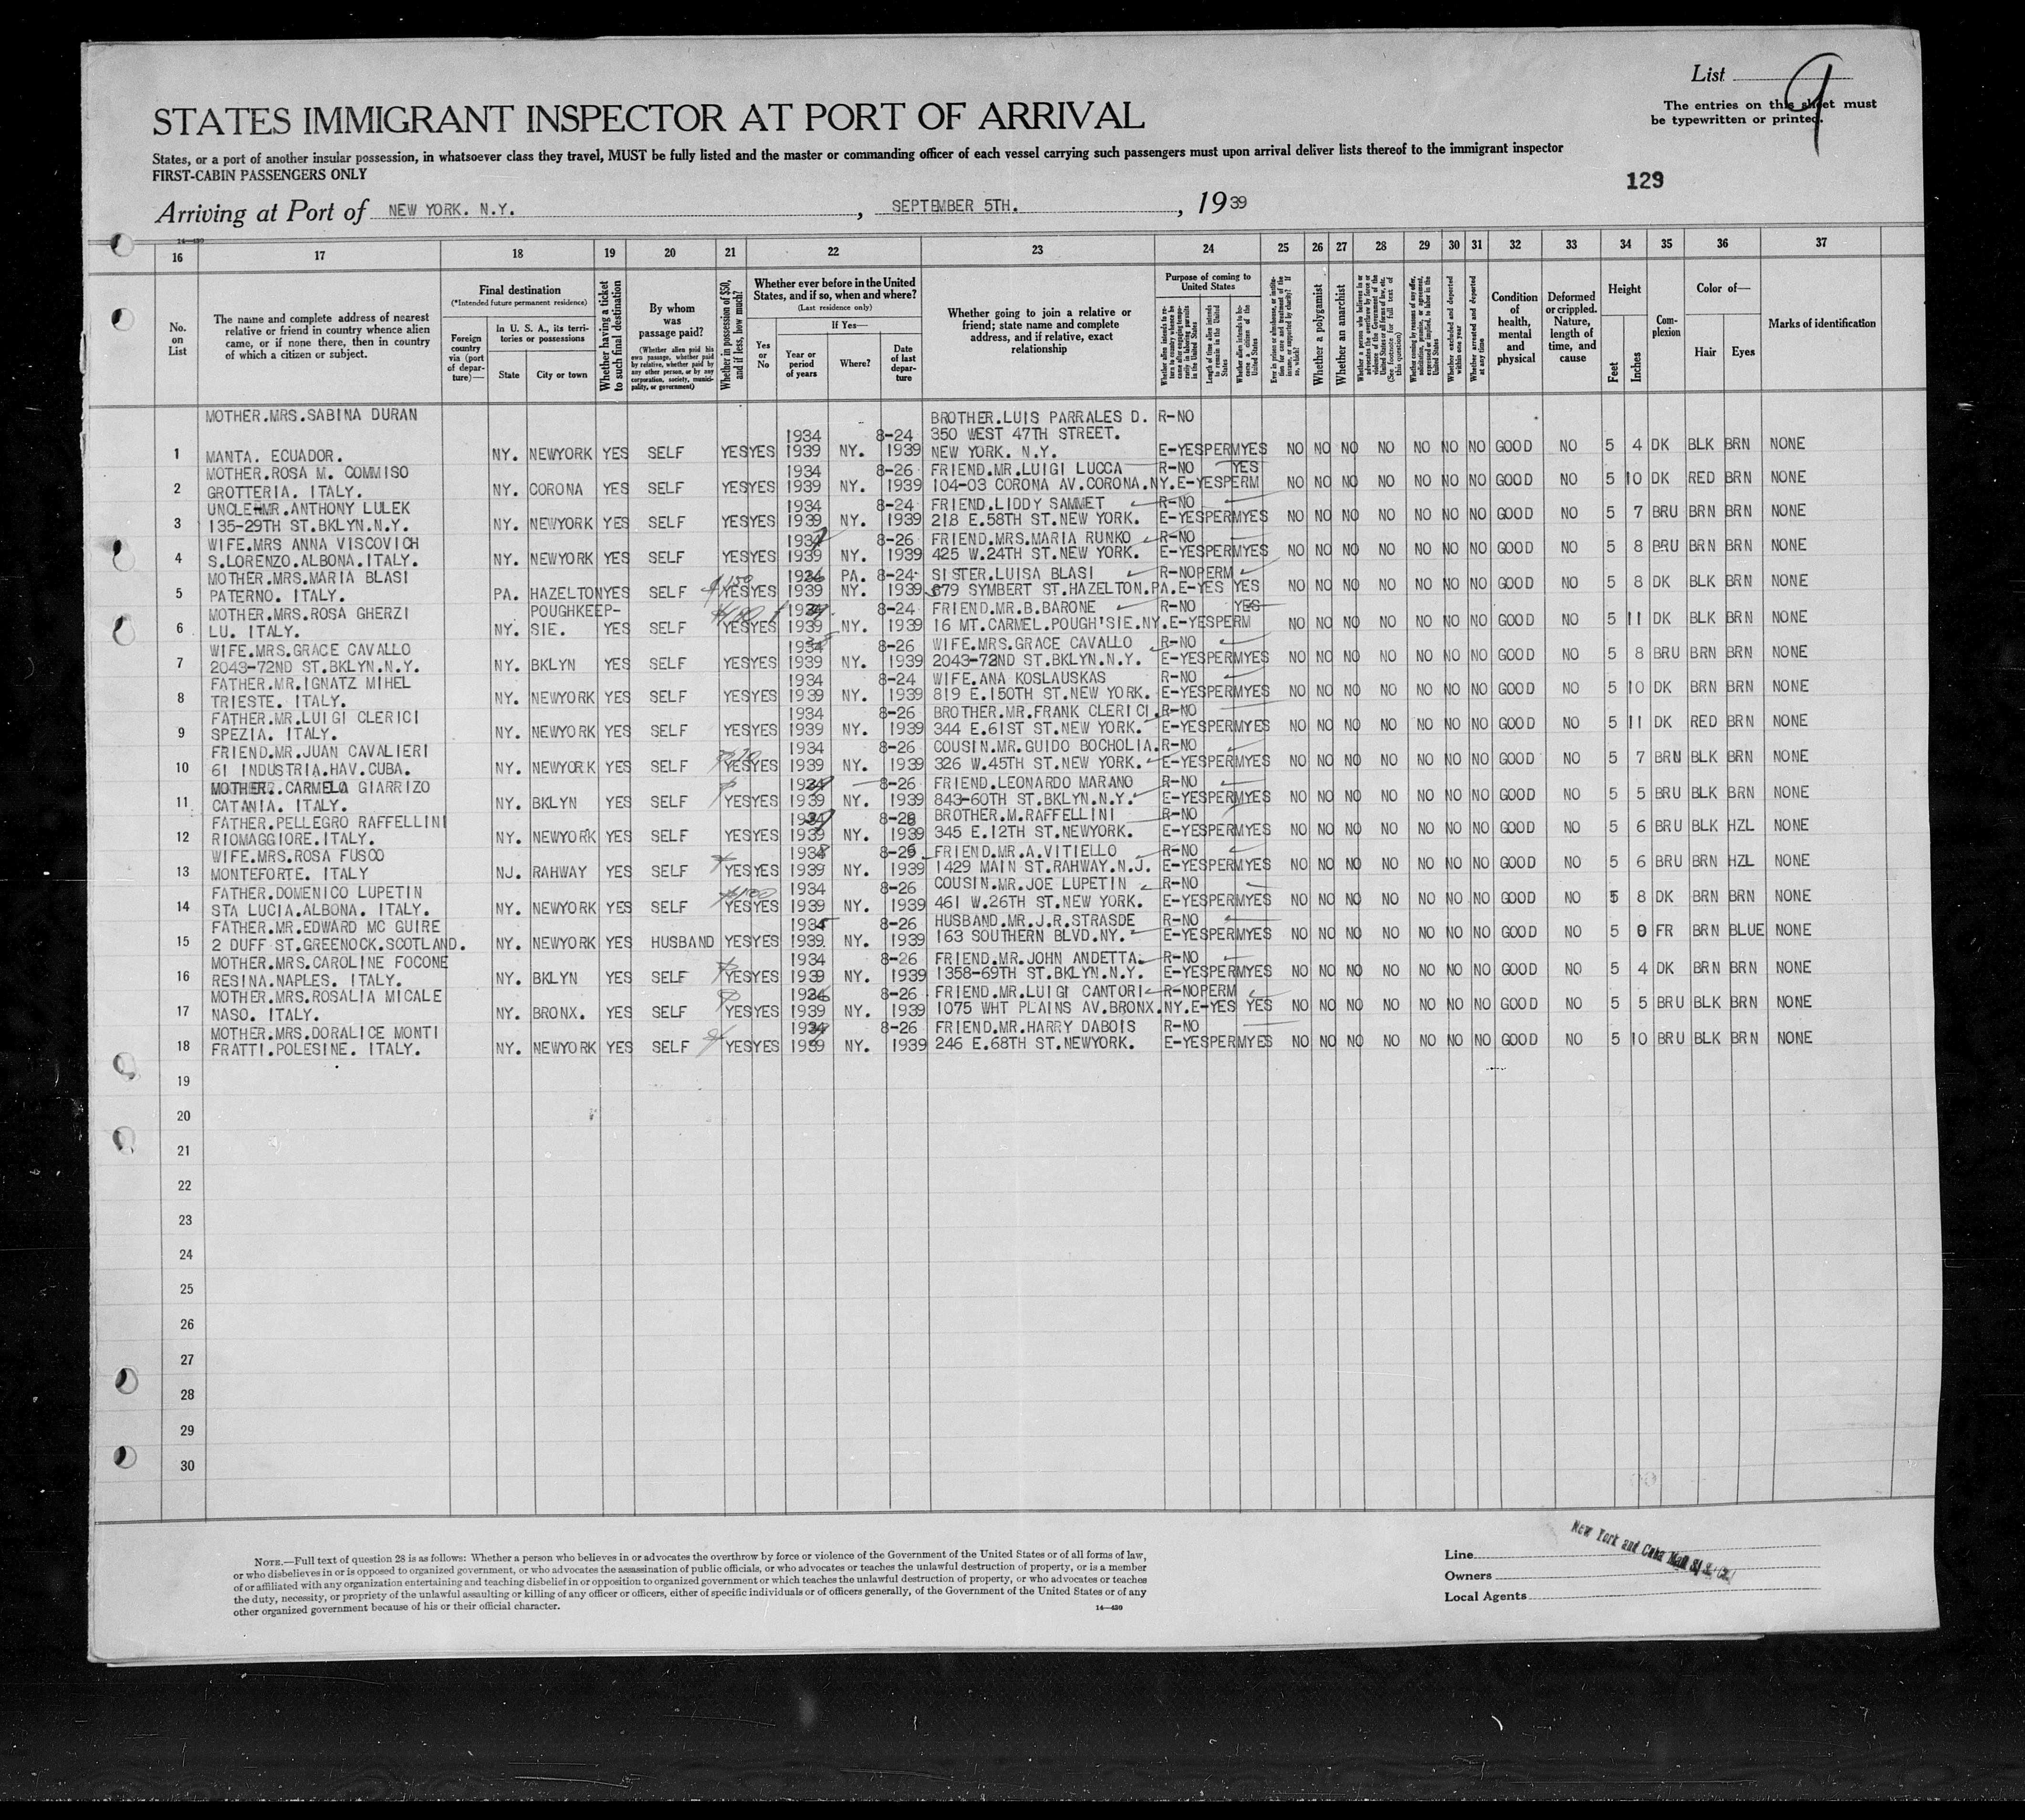 List 9
The entries on this sheet must
be typewritten or printed.
STATES IMMIGRANT INSPECTOR AT PORT OF ARRIVAL
States, or a port of another insular possession, in whatsoever class they travel, MUST be fully listed and the master or commanding officer of each vessel carrying such passengers must upon arrival deliver lists thereof to the immigrant inspector
FIRST-CABIN PASSENGERS ONLY
129
Arriving at Port of NEW YORK. N.Y. , SEPTEMBER 5TH. , 1939
14—430
16 17 18 19 20 21 22 23 24 25 26 27 28 29 30 31 32 33 34 35 36 37
No. on List
The name and complete address of nearest relative or friend in country whence alien came, or if none there, then in country of which a citizen or subject.
Final destination
(*Intended future permanent residence)
Foreign country via (port of departure)—
In U. S. A., its territories or possessions
State City or town
Whether having a ticket to such final destination
By whom was passage paid?
(Whether alien paid his own passage, whether paid by relative, whether paid by any other person, or by any corporation, society, municipality, or government)
Whether in possession of $50, and if less, how much?
Whether ever before in the United States, and if so, when and where?
(Last residence only)
Yes or No
If Yes—
Year or period of years Where? Date of last departure
Whether going to join a relative or friend; state name and complete address, and if relative, exact relationship
Purpose of coming to United States
Whether alien intends to return to country whence he came after engaging temporarily in laboring pursuits in the United States
Length of time alien intends to remain in the United States
Whether alien intends to become a citizen of the United States
Ever in prison or almshouse, or institution for care and treatment of the insane, or supported by charity? If so, which?
Whether a polygamist
Whether an anarchist
Whether a person who believes in or advocates the overthrow by force or violence of the Government of the United States or all forms of law, etc. (See footnote for full text of this question)
Whether coming by reason of any offer, solicitation, promise, or agreement, expressed or implied, to labor in the United States
Whether excluded and deported within one year
Whether arrested and deported at any time
Condition of health, mental and physical
Deformed or crippled. Nature, length of time, and cause
Height
Feet Inches
Complexion
Color of—
Hair Eyes
Marks of identification
MOTHER.MRS.SABINA DURAN BROTHER.LUIS PARRALES D. R-NO
1934 8-24 350 WEST 47TH STREET.
1 MANTA. ECUADOR. NY. NEWYORK YES SELF YES YES 1939 NY. 1939 NEW YORK. N.Y. E-YES PERM YES NO NO NO NO NO NO NO GOOD NO 5 4 DK BLK BRN NONE
MOTHER.ROSA M. COMMISO 1934 8-26 FRIEND.MR.LUIGI LUCCA R-NO YES
2 GROTTERIA. ITALY. NY. CORONA YES SELF YES YES 1939 NY. 1939 104-03 CORONA AV.CORONA.NY. E-YES PERM NO NO NO NO NO NO NO GOOD NO 5 10 DK RED BRN NONE
UNCLE-MR.ANTHONY LULEK 1934 8-24 FRIEND.LIDDY SAMMET R-NO
3 135-29TH ST.BKLYN.N.Y. NY. NEWYORK YES SELF YES YES 1939 NY. 1939 218 E.58TH ST.NEW YORK. E-YES PERM YES NO NO NO NO NO NO NO GOOD NO 5 7 BRU BRN BRN NONE
WIFE.MRS ANNA VISCOVICH 8-26 FRIEND.MRS.MARIA RUNKO R-NO
4 S.LORENZO.ALBONA.ITALY. NY. NEWYORK YES SELF YES YES 1939 NY. 1939 425 W.24TH ST.NEW YORK. E-YES PERM YES NO NO NO NO NO NO NO GOOD NO 5 8 BRU BRN BRN NONE
MOTHER.MRS.MARIA BLASI PA. 8-24 SISTER.LUISA BLASI R-NO PERM
5 PATERNO. ITALY. PA. HAZELTON YES SELF $150 YES YES 1939 NY. 1939 679 SYMBERT ST.HAZELTON.PA. E-YES YES NO NO NO NO NO NO NO GOOD NO 5 8 DK BLK BRN NONE
MOTHER.MRS.ROSA GHERZI POUGHKEEP- 8-24 FRIEND.MR.B.BARONE R-NO YES
6 LU. ITALY. NY. SIE. YES SELF YES YES 1939 NY. 1939 16 MT.CARMEL.POUGH'SIE.NY. E-YES PERM NO NO NO NO NO NO NO GOOD NO 5 11 DK BLK BRN NONE
WIFE.MRS.GRACE CAVALLO 8-26 WIFE.MRS.GRACE CAVALLO R-NO
7 2043-72ND ST.BKLYN.N.Y. NY. BKLYN YES SELF YES YES 1939 NY. 1939 2043-72ND ST.BKLYN.N.Y. E-YES PERM YES NO NO NO NO NO NO NO GOOD NO 5 8 BRU BRN BRN NONE
FATHER.MR.IGNATZ MIHEL 1934 8-24 WIFE.ANA KOSLAUSKAS R-NO
8 TRIESTE. ITALY. NY. NEWYORK YES SELF YES YES 1939 NY. 1939 819 E.150TH ST.NEW YORK. E-YES PERM YES NO NO NO NO NO NO NO GOOD NO 5 10 DK BRN BRN NONE
FATHER.MR.LUIGI CLERICI 1934 8-26 BROTHER.MR.FRANK CLERICI. R-NO
9 SPEZIA. ITALY. NY. NEWYORK YES SELF YES YES 1939 NY. 1939 344 E.61ST ST.NEW YORK. E-YES PERM YES NO NO NO NO NO NO NO GOOD NO 5 11 DK RED BRN NONE
FRIEND.MR.JUAN CAVALIERI 1934 8-26 COUSIN.MR.GUIDO BOCHOLIA. R-NO
10 61 INDUSTRIA.HAV.CUBA. NY. NEWYORK YES SELF YES YES 1939 NY. 1939 326 W.45TH ST.NEW YORK. E-YES PERM YES NO NO NO NO NO NO NO GOOD NO 5 7 BRN BLK BRN NONE
MOTHER. CARMELA GIARRIZO 8-26 FRIEND.LEONARDO MARANO R-NO
11 CATANIA. ITALY. NY. BKLYN YES SELF YES YES 1939 NY. 1939 843-60TH ST.BKLYN.N.Y. E-YES PERM YES NO NO NO NO NO NO NO GOOD NO 5 5 BRU BLK BRN NONE
FATHER.PELLEGRO RAFFELLINI BROTHER.M.RAFFELLINI R-NO
12 RIOMAGGIORE.ITALY. NY. NEWYORK YES SELF YES YES 1939 NY. 1939 345 E.12TH ST.NEWYORK. E-YES PERM YES NO NO NO NO NO NO NO GOOD NO 5 6 BRU BLK HZL NONE
WIFE.MRS.ROSA FUSCO FRIEND.MR.A.VITIELLO R-NO
13 MONTEFORTE. ITALY NJ. RAHWAY YES SELF YES YES 1939 NY. 1939 1429 MAIN ST.RAHWAY.N.J. E-YES PERM YES NO NO NO NO NO NO NO GOOD NO 5 6 BRU BRN HZL NONE
FATHER.DOMENICO LUPETIN 1934 8-26 COUSIN.MR.JOE LUPETIN R-NO
14 STA LUCIA.ALBONA. ITALY. NY. NEWYORK YES SELF YES YES 1939 NY. 1939 461 W.26TH ST.NEW YORK. E-YES PERM YES NO NO NO NO NO NO NO GOOD NO 5 8 DK BRN BRN NONE
FATHER.MR.EDWARD MC GUIRE 1935 8-26 HUSBAND.MR.J.R.STRASDE R-NO
15 2 DUFF ST.GREENOCK.SCOTLAND. NY. NEWYORK YES HUSBAND YES YES 1939 NY. 1939 163 SOUTHERN BLVD.NY. E-YES PERM YES NO NO NO NO NO NO NO GOOD NO 5 0 FR BRN BLUE NONE
MOTHER.MRS.CAROLINE FOCONE 1934 8-26 FRIEND.MR.JOHN ANDETTA. R-NO
16 RESINA.NAPLES. ITALY. NY. BKLYN YES SELF YES YES 1939 NY. 1939 1358-69TH ST.BKLYN.N.Y. E-YES PERM YES NO NO NO NO NO NO NO GOOD NO 5 4 DK BRN BRN NONE
MOTHER.MRS.ROSALIA MICALE 8-26 FRIEND.MR.LUIGI CANTORI R-NO PERM
17 NASO. ITALY. NY. BRONX. YES SELF YES YES 1939 NY. 1939 1075 WHT PLAINS AV.BRONX.NY. E-YES YES NO NO NO NO NO NO NO GOOD NO 5 5 BRU BLK BRN NONE
MOTHER.MRS.DORALICE MONTI 8-26 FRIEND.MR.HARRY DABOIS R-NO
18 FRATTI.POLESINE. ITALY. NY. NEWYORK YES SELF YES YES 1939 NY. 1939 246 E.68TH ST.NEWYORK. E-YES PERM YES NO NO NO NO NO NO NO GOOD NO 5 10 BRU BLK BRN NONE
19
20
21
22
23
24
25
26
27
28
29
30
NOTE.—Full text of question 28 is as follows: Whether a person who believes in or advocates the overthrow by force or violence of the Government of the United States or of all forms of law,
or who disbelieves in or is opposed to organized government, or who advocates the assassination of public officials, or who advocates or teaches the unlawful destruction of property, or is a member
of or affiliated with any organization entertaining and teaching disbelief in or opposition to organized government or which teaches the unlawful destruction of property, or who advocates or teaches
the duty, necessity, or propriety of the unlawful assaulting or killing of any officer or officers, either of specific individuals or of officers generally, of the Government of the United States or of any
other organized government because of his or their official character.
14—430
Line
New York and Cuba Mail S.S. Co.
Owners
Local Agents